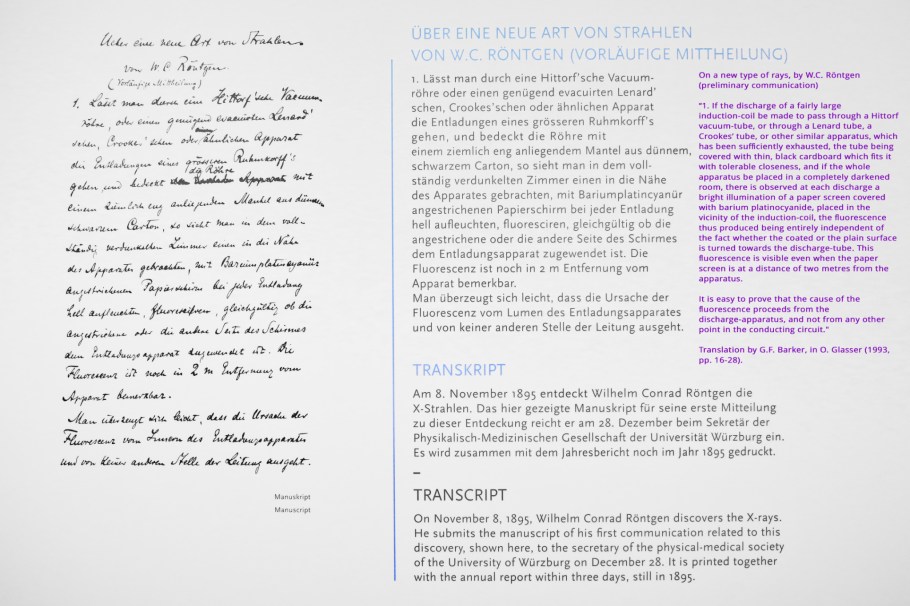 Ueber eine neue Art von Strahlen.
von W. C. Röntgen.
(Vorläufige Mittheilung)
1. Lässt man durch eine Hittorf'sche Vacuum-
röhre, oder einen genügend evacuirten Lenard'
schen, Crookes'schen oder ähnlichen Apparat
die Entladungen eines grösseren Ruhmkorff's
gehen und bedeckt die Röhre mit
einem ziemlich eng anliegenden Mantel aus dünnem
schwarzem Carton, so sieht man in dem voll-
ständig verdunkelten Zimmer einen in die Nähe
des Apparates gebrachten, mit Bariumplatincyanür
angestrichenen Papierschirm bei jeder Entladung
hell aufleuchten, fluoresciren, gleichgültig ob die
angestrichene oder die andere Seite des Schirmes
dem Entladungsapparat zugewendet ist. Die
Fluorescenz ist noch in 2 m Entfernung vom
Apparat bemerkbar.
Man überzeugt sich leicht, dass die Ursache der
Fluorescenz vom Innern des Entladungsapparates
und von keiner anderen Stelle der Leitung ausgeht.
Manuskript
Manuscript
ÜBER EINE NEUE ART VON STRAHLEN
VON W.C. RÖNTGEN (VORLÄUFIGE MITTHEILUNG)
1. Lässt man durch eine Hittorf'sche Vacuum-
röhre oder einen genügend evacuirten Lenard'
schen, Crookes'schen oder ähnlichen Apparat
die Entladungen eines grösseren Ruhmkorff's
gehen, und bedeckt die Röhre mit
einem ziemlich eng anliegendem Mantel aus dünnem,
schwarzem Carton, so sieht man in dem voll-
ständig verdunkelten Zimmer einen in die Nähe
des Apparates gebrachten, mit Bariumplatincyanür
angestrichenen Papierschirm bei jeder Entladung
hell aufleuchten, fluoresciren, gleichgültig ob die
angestrichene oder die andere Seite des Schirmes
dem Entladungsapparat zugewendet ist. Die
Fluorescenz ist noch in 2 m Entfernung vom
Apparat bemerkbar.
Man überzeugt sich leicht, dass die Ursache der
Fluorescenz vom Lumen des Entladungsapparates
und von keiner anderen Stelle der Leitung ausgeht.
On a new type of rays, by W.C. Röntgen
(preliminary communication)
"1. If the discharge of a fairly large
induction-coil be made to pass through a Hittorf
vacuum-tube, or through a Lenard tube, a
Crookes' tube, or other similar apparatus, which
has been sufficiently exhausted, the tube being
covered with thin, black cardboard which fits it
with tolerable closeness, and if the whole
apparatus be placed in a completely darkened
room, there is observed at each discharge a
bright illumination of a paper screen covered
with barium platinocyanide, placed in the
vicinity of the induction-coil, the fluorescence
thus produced being entirely independent of
the fact whether the coated or the plain surface
is turned towards the discharge-tube. This
fluorescence is visible even when the paper
screen is at a distance of two metres from the
apparatus.
It is easy to prove that the cause of the
fluorescence proceeds from the
discharge-apparatus, and not from any other
point in the conducting circuit."
Translation by G.F. Barker, in O. Glasser (1993,
pp. 16-28).
TRANSKRIPT
Am 8. November 1895 entdeckt Wilhelm Conrad Röntgen die
X-Strahlen. Das hier gezeigte Manuskript für seine erste Mitteilung
zu dieser Entdeckung reicht er am 28. Dezember beim Sekretär der
Physikalisch-Medizinischen Gesellschaft der Universität Würzburg ein.
Es wird zusammen mit dem Jahresbericht noch im Jahr 1895 gedruckt.
–
TRANSCRIPT
On November 8, 1895, Wilhelm Conrad Röntgen discovers the X-rays.
He submits the manuscript of his first communication related to this
discovery, shown here, to the secretary of the physical-medical society
of the University of Würzburg on December 28. It is printed together
with the annual report within three days, still in 1895.